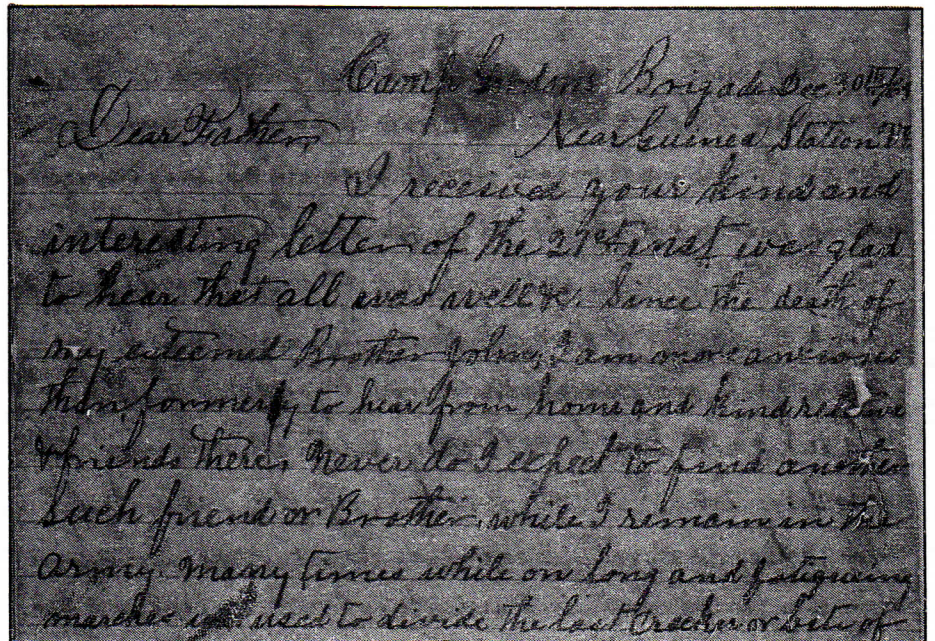 Camp Brigade Dec 30th
Dear Father Near Guinea Station Va
I received your kind and
interesting letter of the 21st inst was glad
to hear that all was well &c. Since the death of
my esteemed Brother John, I am more anxious
than formerly to hear from home and kind relative
& friends there, never do I expect to find another
such friend or Brother, while I remain in the
Army. many times while on long and fatiguing
marches we used to divide the last Cracker or bite of